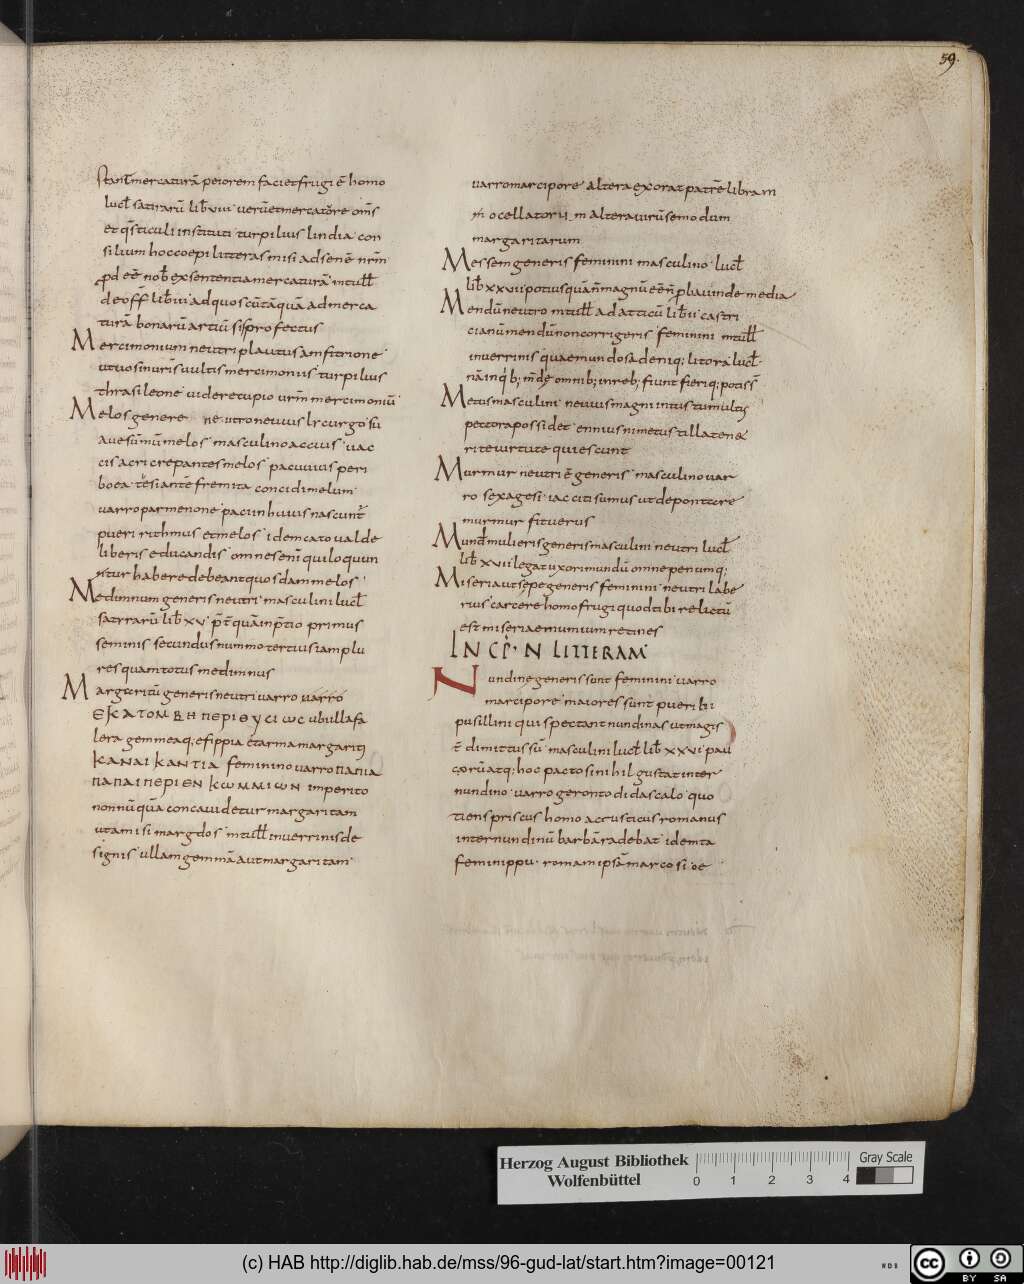 59.
stant mercaturā peiorem faciet frugi ē homo
lucł satirarū libˉ viii verū et mercatore om̄s
et q̄sticuli instituti turpilius lindia con
silium hoc coepi litteras misi ad senē nr̄m
ꝓd eē nobˉ ex sententia mercaturā m tułł
de off libˉ iii ad quos cū tāquā ad merca
turā bonarū artiū sis profectus
Mercimonium neutri plautus amfitrione
ut vos in ur̄is vultis mercimoniis turpilius
thrasileone videre tupio urm̄ mercimoniū
Melos genere ne utro nevius lycurgo sū
ave sūmū melos masculino accius vac
cis acri crepantes melos pacuvius peri
boea tesiantē fremita concidi melum
varro parmenone paci in huius nascunt̄
pueri rithmus et melos idem cato valde
liberis educandis omnes eni qui loquun
tur habere debeant quosdam melos
Medimnum generis neutri masculini lucł
satirarū libˉ xv p̄t quā in p̄tio primus
seminis secundus nummo tertius iam plu
res quam totus medimnus
Margaritū generis neutri varro varro
ΕΚΑΤΟΜΒΗ ΠΕΡΙ ΘΥCΙωC ubullafa
lera gemmeaq; efippia et arma margaritis
ΚΑΝΑΙ ΚΑΝΤΙΑ feminino varro ΠΑΠΙΑ
ΠΑΠΑΙ ΠΕΡΙ ΕΝΚωΜΑΙωΝ imperito
nonnūquā concavi detur margaritam
utam isi margdos m tułł in verrinis de
signis ullam gemmā aut margaritam
varro marcipore altera exorat patrē libram
m̄ ocellatorū m altera virū semodium
margaritarum
Messem generis feminini masculino lucł
libˉ xxvii potius quā n̄ magnū eēn̄ ꝓbavi unde media
Mendū neutro m tułł ad atticū libˉ ii castri
cianū mendū non corrigeris feminini m tułł
in verrinis quae mundosa deniq; litora lucł
nā inq b; m̄ de omnib; in reb; fiunt fieriq; potiss̄
Metus masculini nevius magni intus tumultus
pectora possidet ennius ni metus tilla tenet
rite virtute quiescunt
Murmur neutri ē generis masculino var
ro sexagesi iacciti sumus ut depontare
murmur fit verus
Mund̄ mulieris generis masculini neutri lucł
libˉ xvii legat uxori mundū omne penumq;
Miseria ut sepe generis feminini neutri labe
rius carcere homo frugi quod tibi relictū
est miseriae munium retines
INCP̄ · N LITTERAM
Nundine generis sunt feminini varro
marcipore maiores sunt pueri bi
pusillini qui spectant nundinas ut magis
t̄ dimittus sū masculini lucł libˉ xxvi pau
corū atq; hoc pacto si nihil gustat inter
nundino varro geronto didascalo quo
tiens priscus homo ac rusticus romanus
inter nundinū barbā radebat idem ta
feminippu romam ipsā marco si oe
Herzog August Bibliothek
Wolfenbüttel
0 1 2 3 4
Gray Scale
(c) HAB http://diglib.hab.de/mss/96-gud-lat/start.htm?image=00121
WDB
cc BY SA